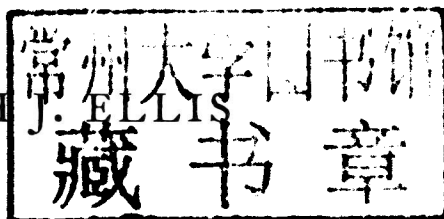 常州大学图书馆
J. ELLIS
藏书章